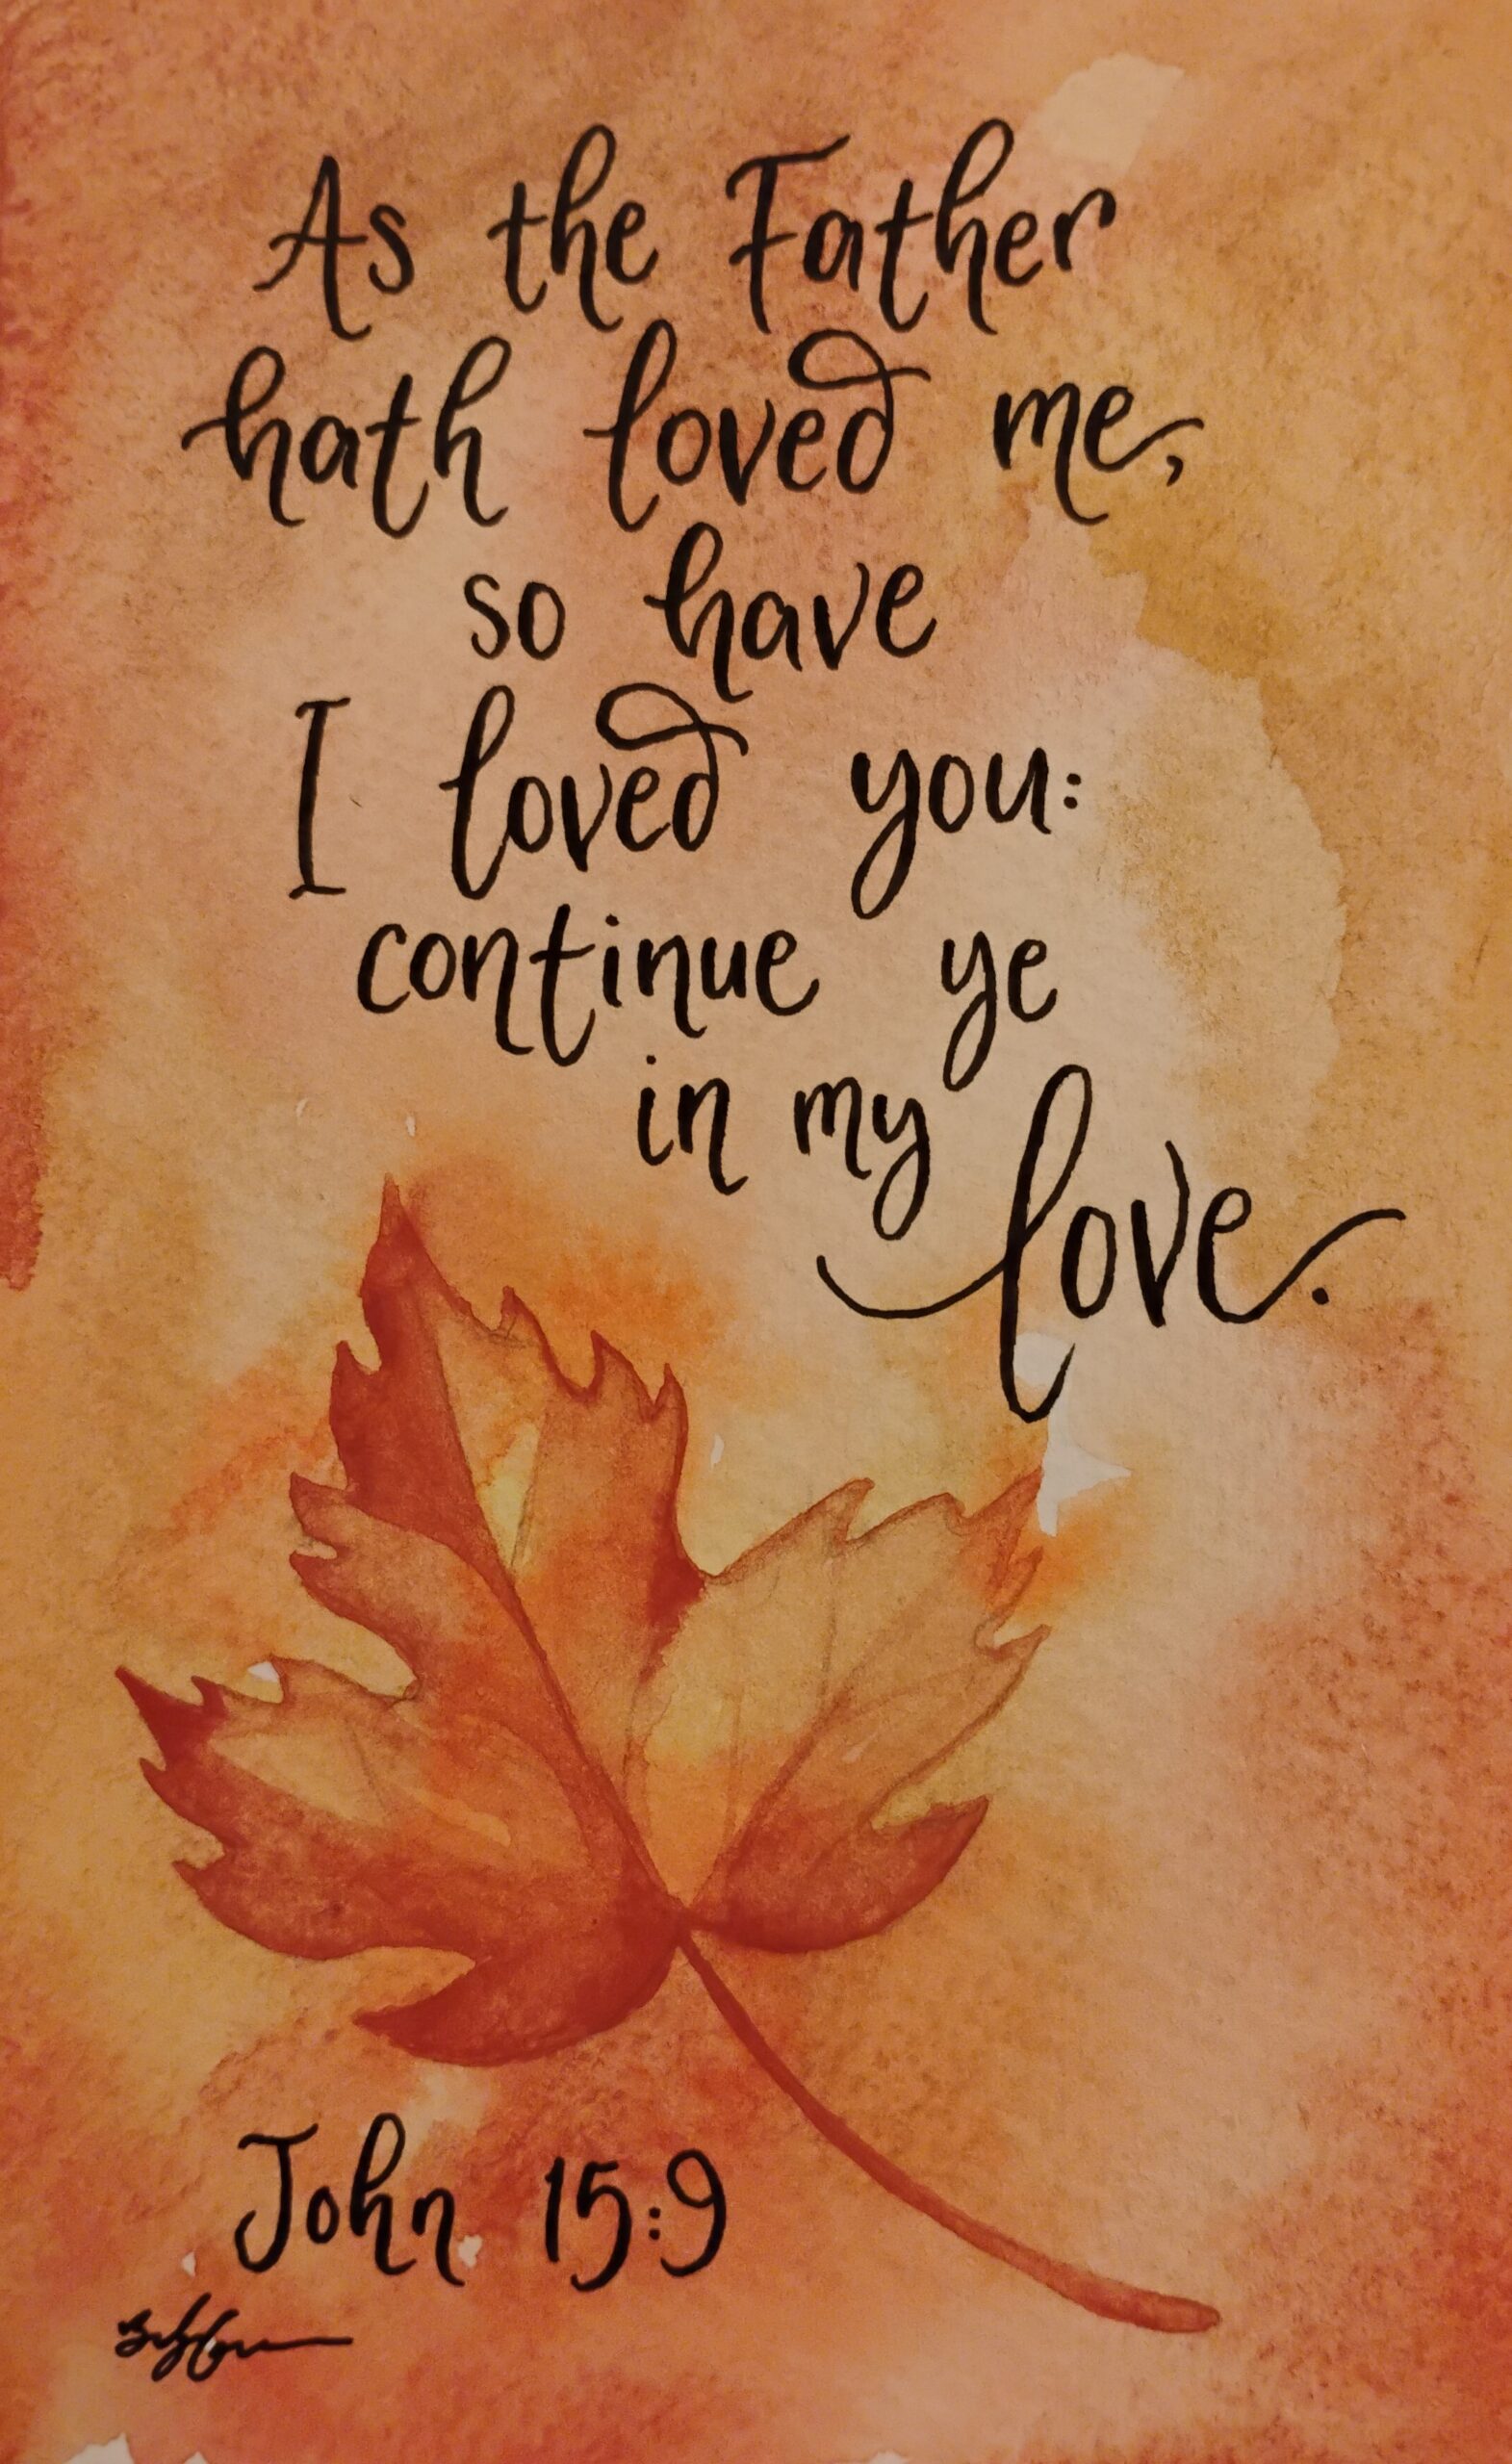 As the Father
hath loved me,
so have
I loved you:
continue ye
in my
love.
John 15:9